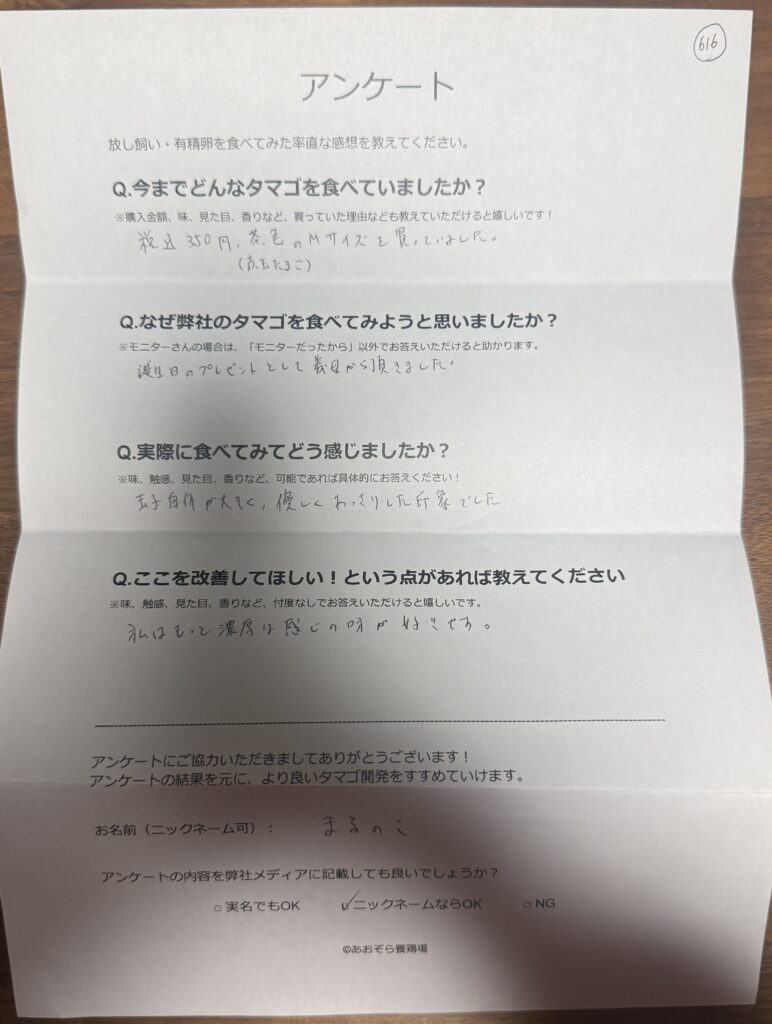 616
アンケート
放し飼い・有精卵を食べてみた率直な感想を教えてください。
Q.今までどんなタマゴを食べていましたか？
※購入金額、味、見た目、香りなど、買っていた理由なども教えていただけると嬉しいです！
税込350円、茶色のMサイズを買っていました。
Q.なぜ弊社のタマゴを食べてみようと思いましたか？
※モニターさんの場合は、「モニターだったから」以外でお答えいただけると助かります。
誕生日のプレゼントとして義母から頂きました。
Q.実際に食べてみてどう感じましたか？
※味、触感、見た目、香りなど、可能であれば具体的にお答えください！
玉子自体が大きく、優しくあっさりした印象でした
Q.ここを改善してほしい！という点があれば教えてください
※味、触感、見た目、香りなど、忖度なしでお答えいただけると嬉しいです。
私はもっと濃厚な感じの味が好きです。
アンケートにご協力いただきましてありがとうございます！
アンケートの結果を元に、より良いタマゴ開発をすすめていけます。
お名前（ニックネーム可）： まるのこ
アンケートの内容を弊社メディアに記載しても良いでしょうか？
□ 実名でもOK ☑ ニックネームならOK □ NG
©あおぞら養鶏場